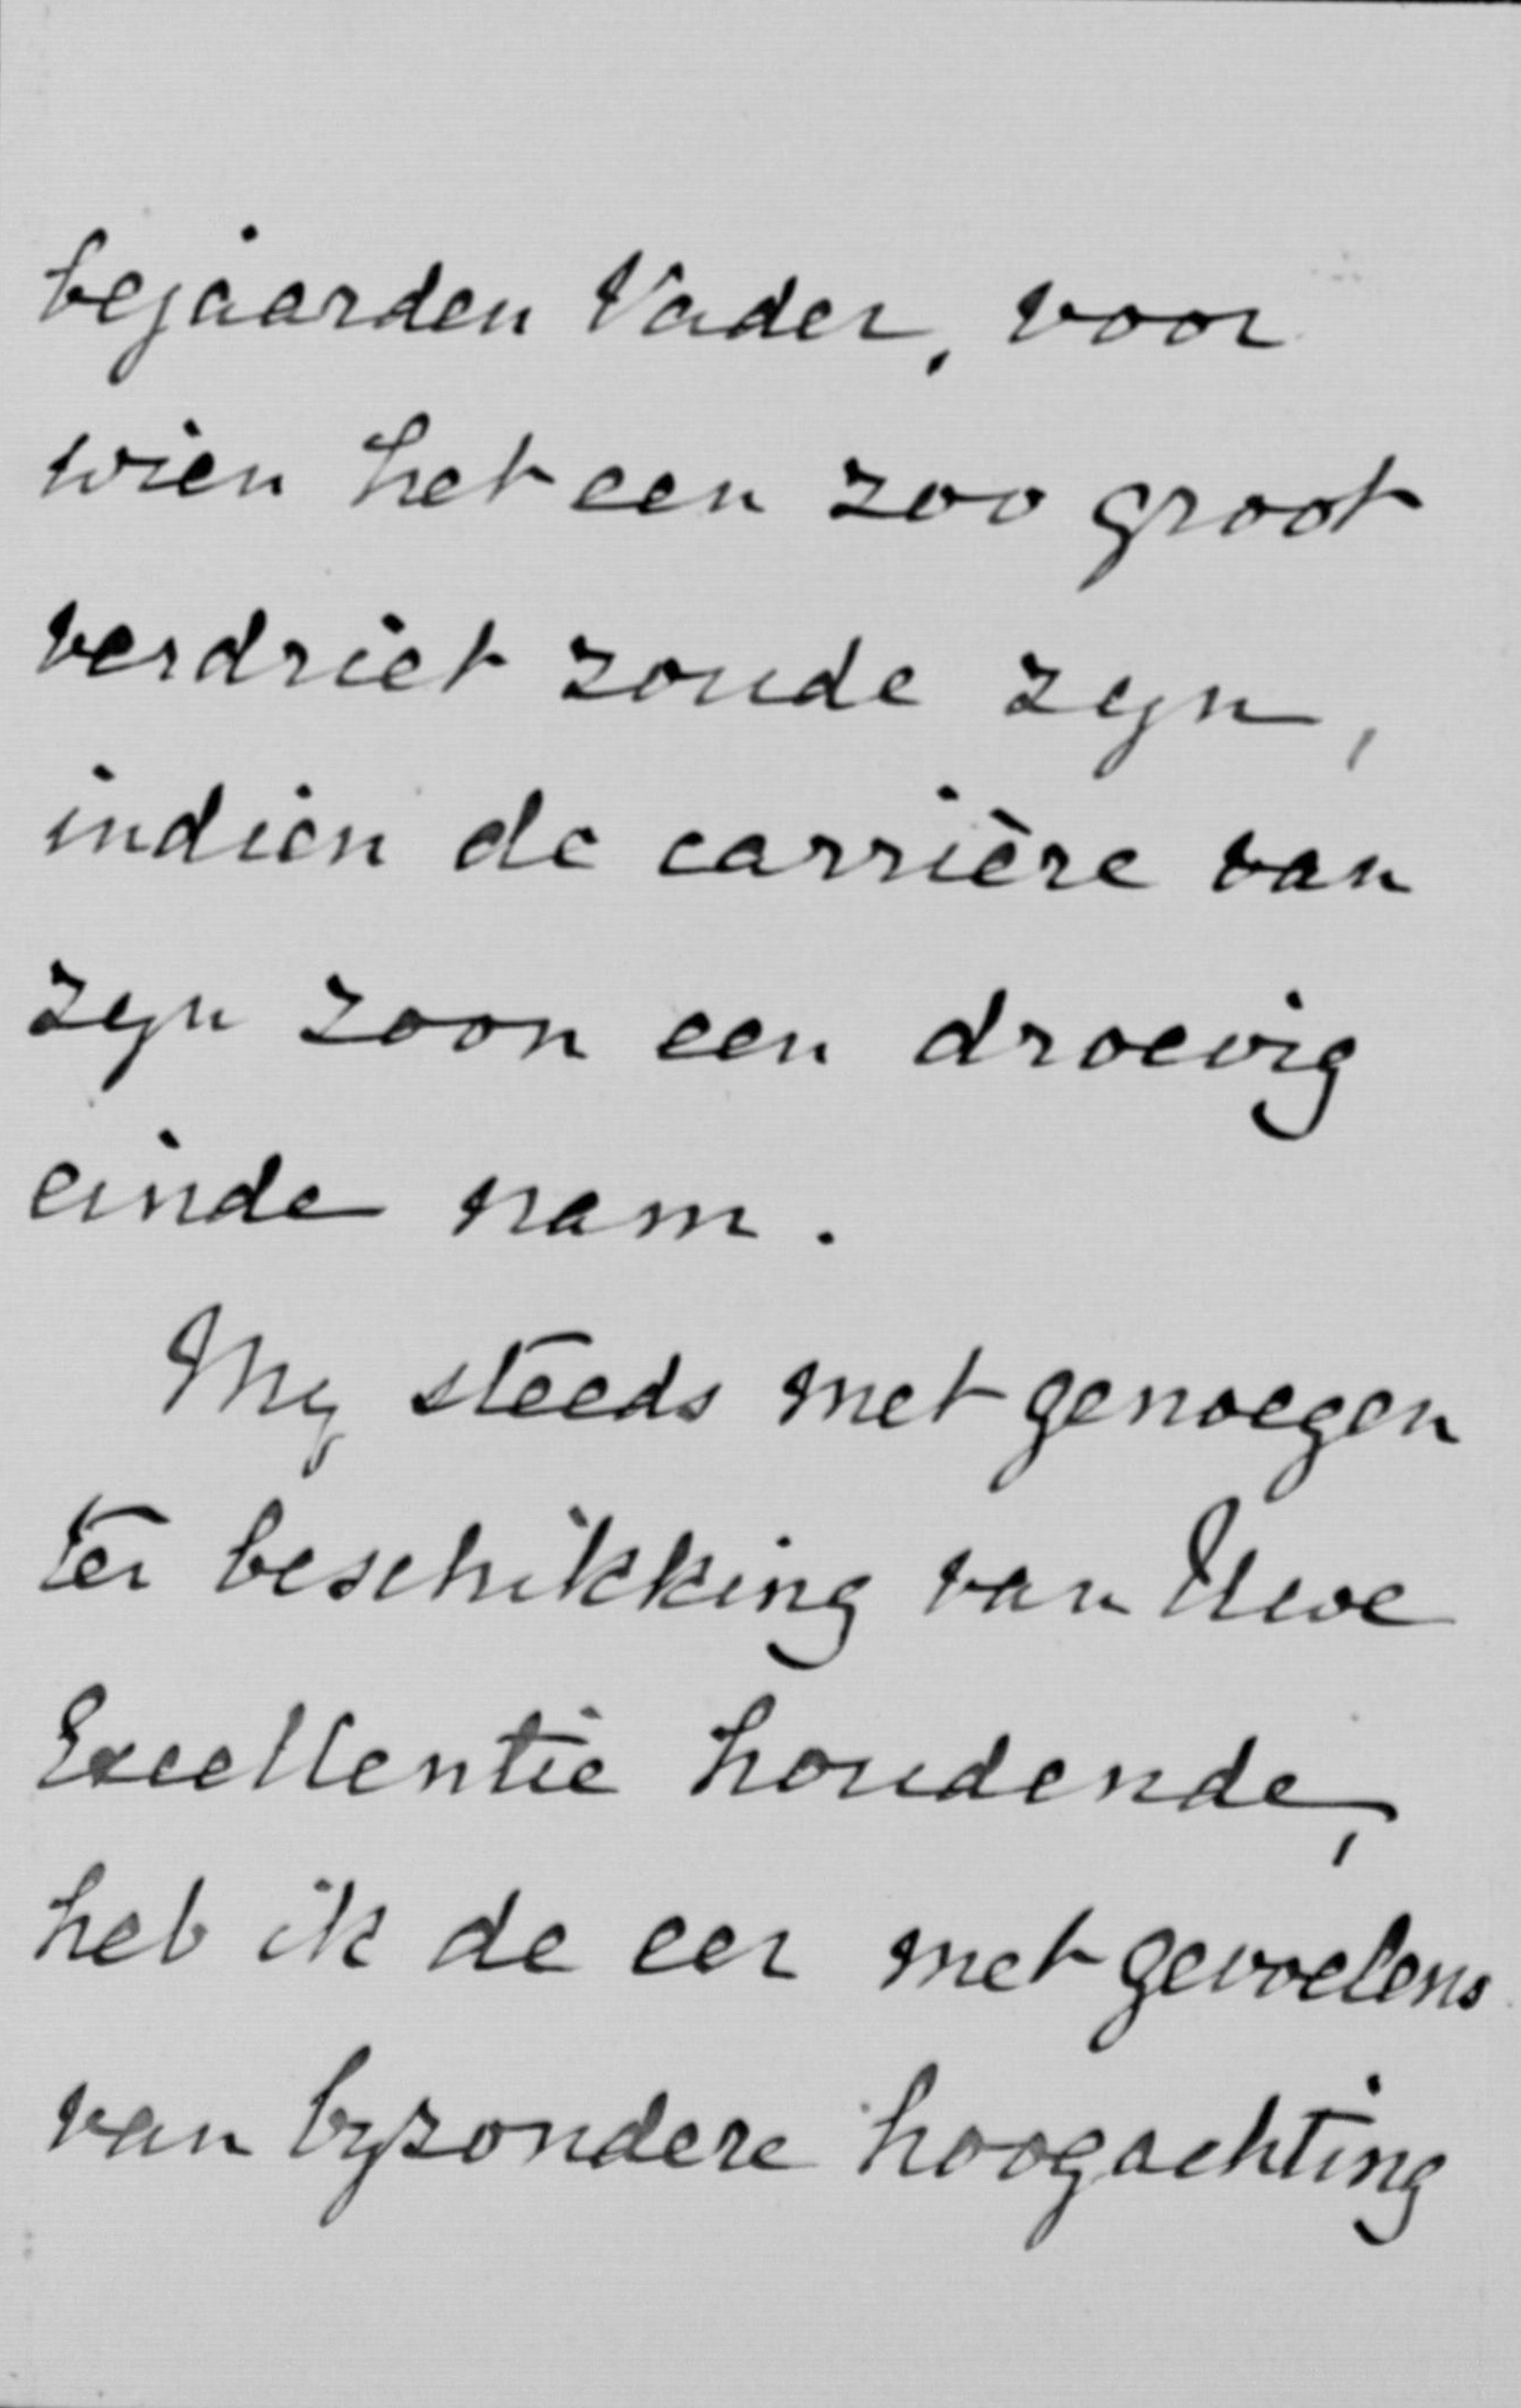 bejaarden Vader, voor
wien het een zoo groot
verdriet zoude zyn,
indien de carrière van
zyn zoon een droevig
einde nam.
My steeds met genoegen
ter beschikking van Uwe
Excellentie houdende,
heb ik de eer met gevoelens
van byzondere hoogachting